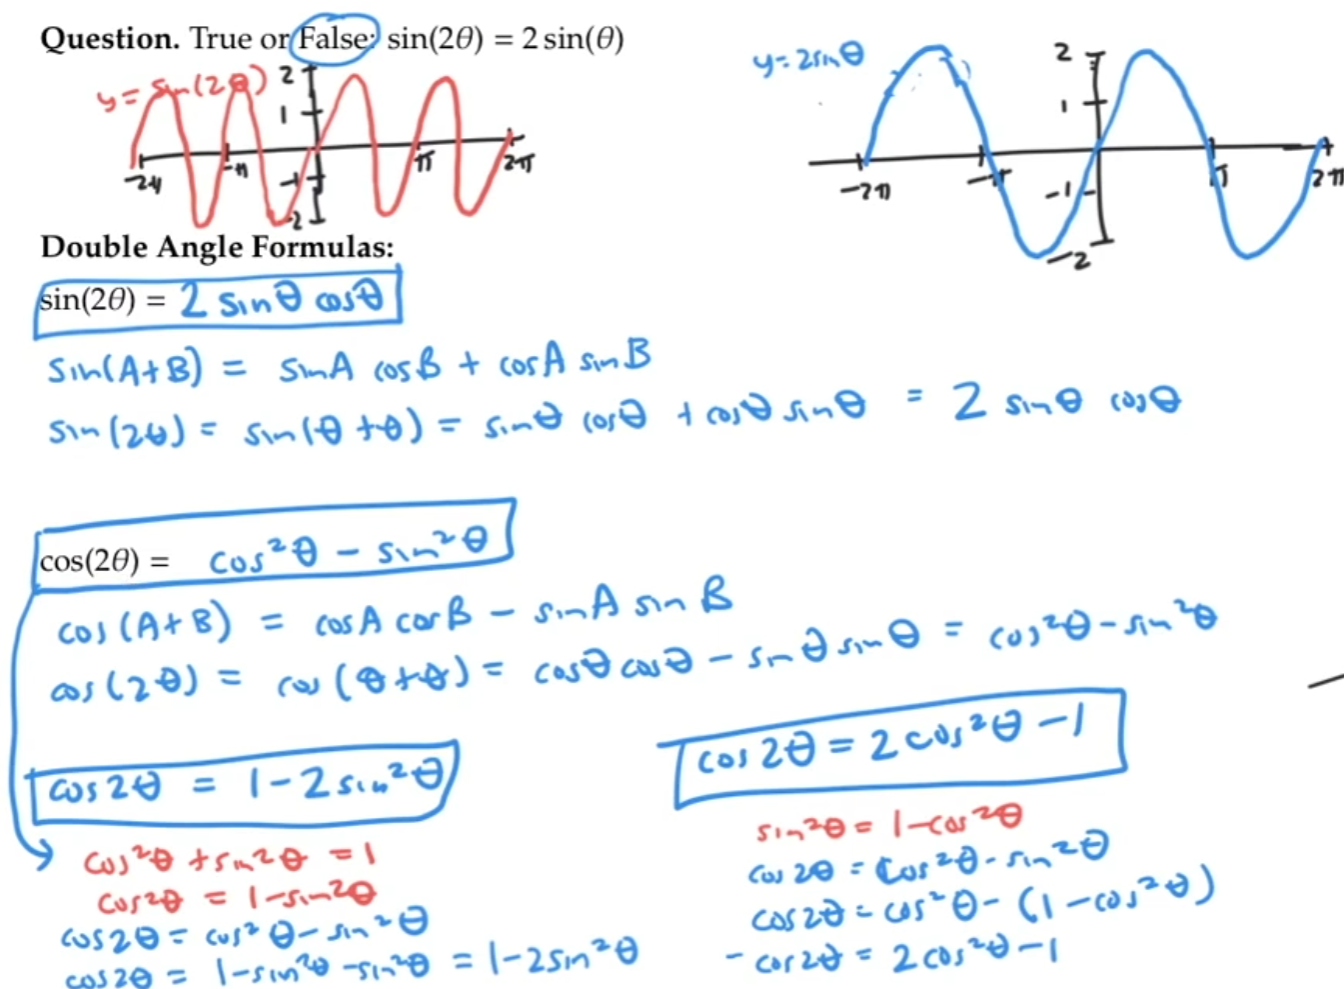 Question. True or False: sin(2θ) = 2 sin(θ)
y = sin(2θ)
2
1
-2π
-π
π
2π
-1
-2
y = 2sinθ
2
1
-2π
-π
π
2π
-1
-2
Double Angle Formulas:
sin(2θ) = 2 sinθ cosθ
sin(A+B) = sinA cosB + cosA sinB
sin(2θ) = sin(θ+θ) = sinθ cosθ + cosθ sinθ = 2 sinθ cosθ
cos(2θ) = cos²θ - sin²θ
cos(A+B) = cosA cosB - sinA sinB
cos(2θ) = cos(θ+θ) = cosθ cosθ - sinθ sinθ = cos²θ - sin²θ
cos2θ = 1-2sin²θ
cos²θ + sin²θ = 1
cos²θ = 1-sin²θ
cos2θ = cos²θ - sin²θ
cos2θ = 1-sin²θ -sin²θ = 1-2sin²θ
cos2θ = 2cos²θ -1
sin²θ = 1-cos²θ
cos2θ = cos²θ - sin²θ
cos2θ = cos²θ - (1-cos²θ)
- cos2θ = 2cos²θ -1